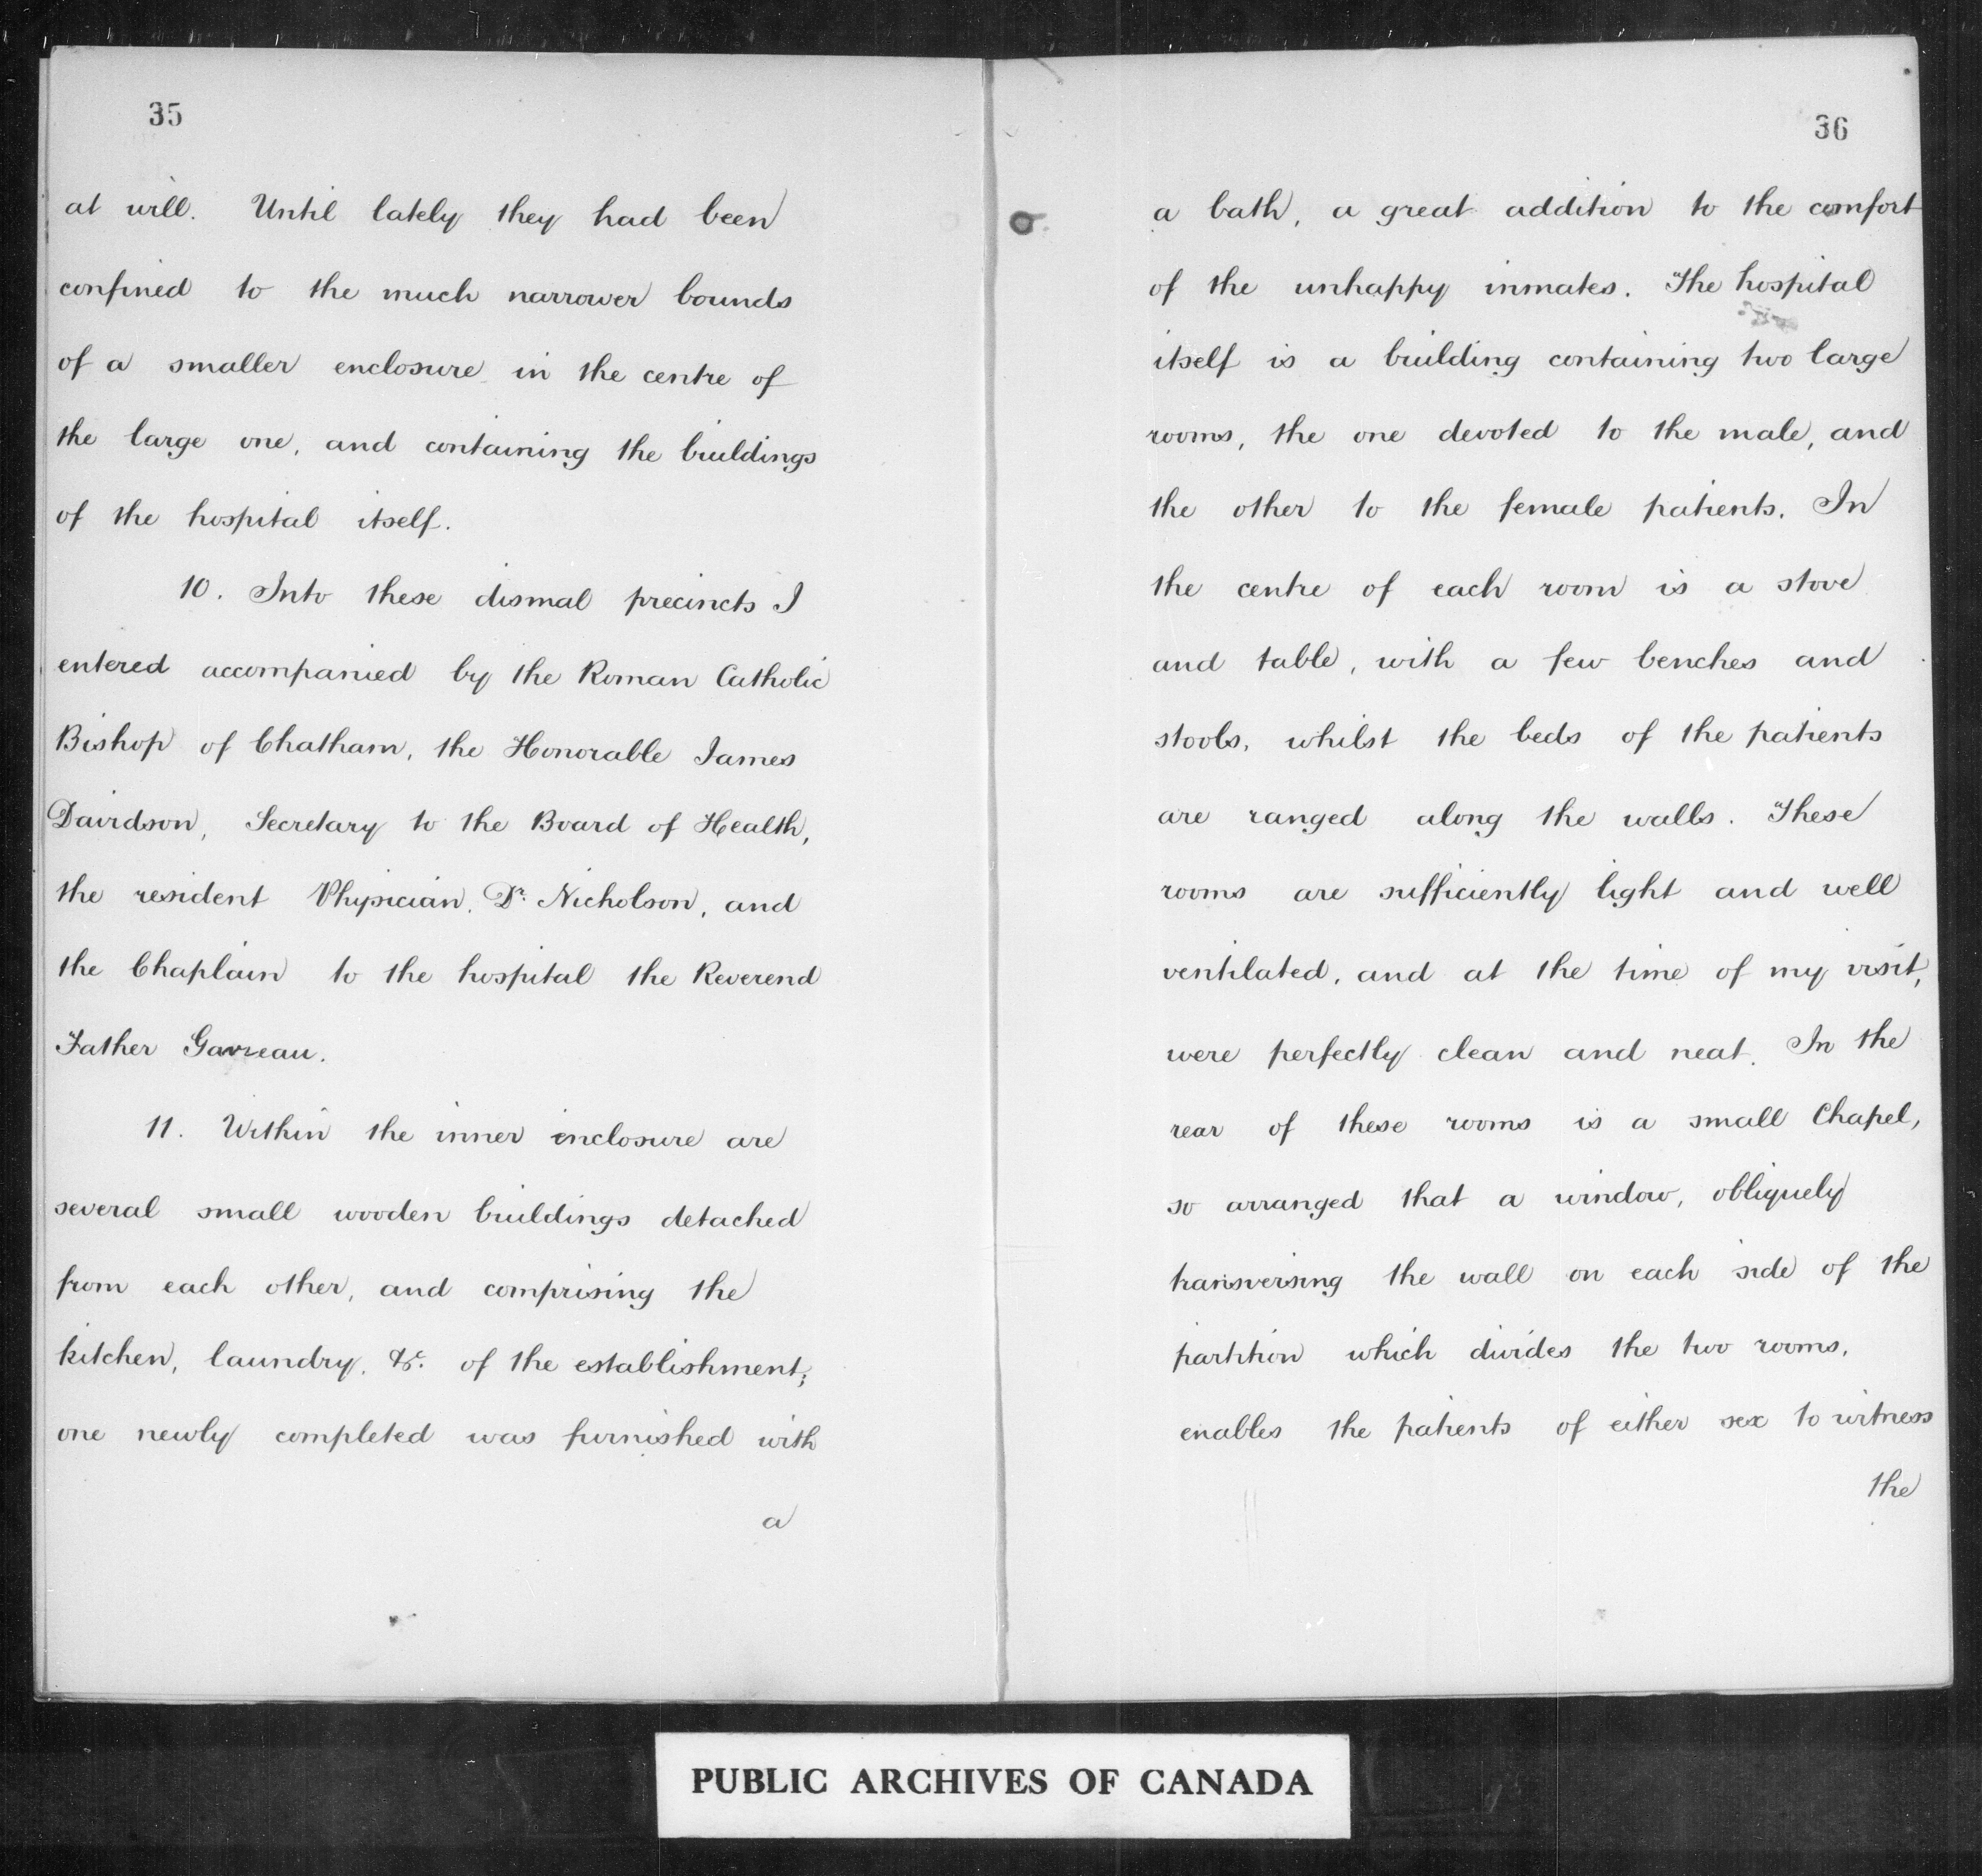 35
at will. Until lately they had been
confined to the much narrower bounds
of a smaller enclosure in the centre of
the large one, and containing the buildings
of the hospital itself.
10. Into these dismal precincts I
entered accompanied by the Roman Catholic
Bishop of Chatham, the Honorable James
Davidson, Secretary to the Board of Health,
the resident Physician, Dr. Nicholson, and
the Chaplain to the hospital the Reverend
Father Gavreau.
11. Within the inner inclosure are
several small wooden buildings detached
from each other, and comprising the
kitchen, laundry, &c. of the establishment;
one newly completed was furnished with
a
36
a bath, a great addition to the comfort
of the unhappy inmates. The hospital
itself is a building containing two large
rooms, the one devoted to the male, and
the other to the female patients. In
the centre of each room is a stove
and table, with a few benches and
stools, whilst the beds of the patients
are ranged along the walls. These
rooms are sufficiently light and well
ventilated, and at the time of my visit,
were perfectly clean and neat. In the
rear of these rooms is a small Chapel,
so arranged that a window, obliquely
transversing the wall on each side of the
partition which divides the two rooms,
enables the patients of either sex to witness
the
PUBLIC ARCHIVES OF CANADA